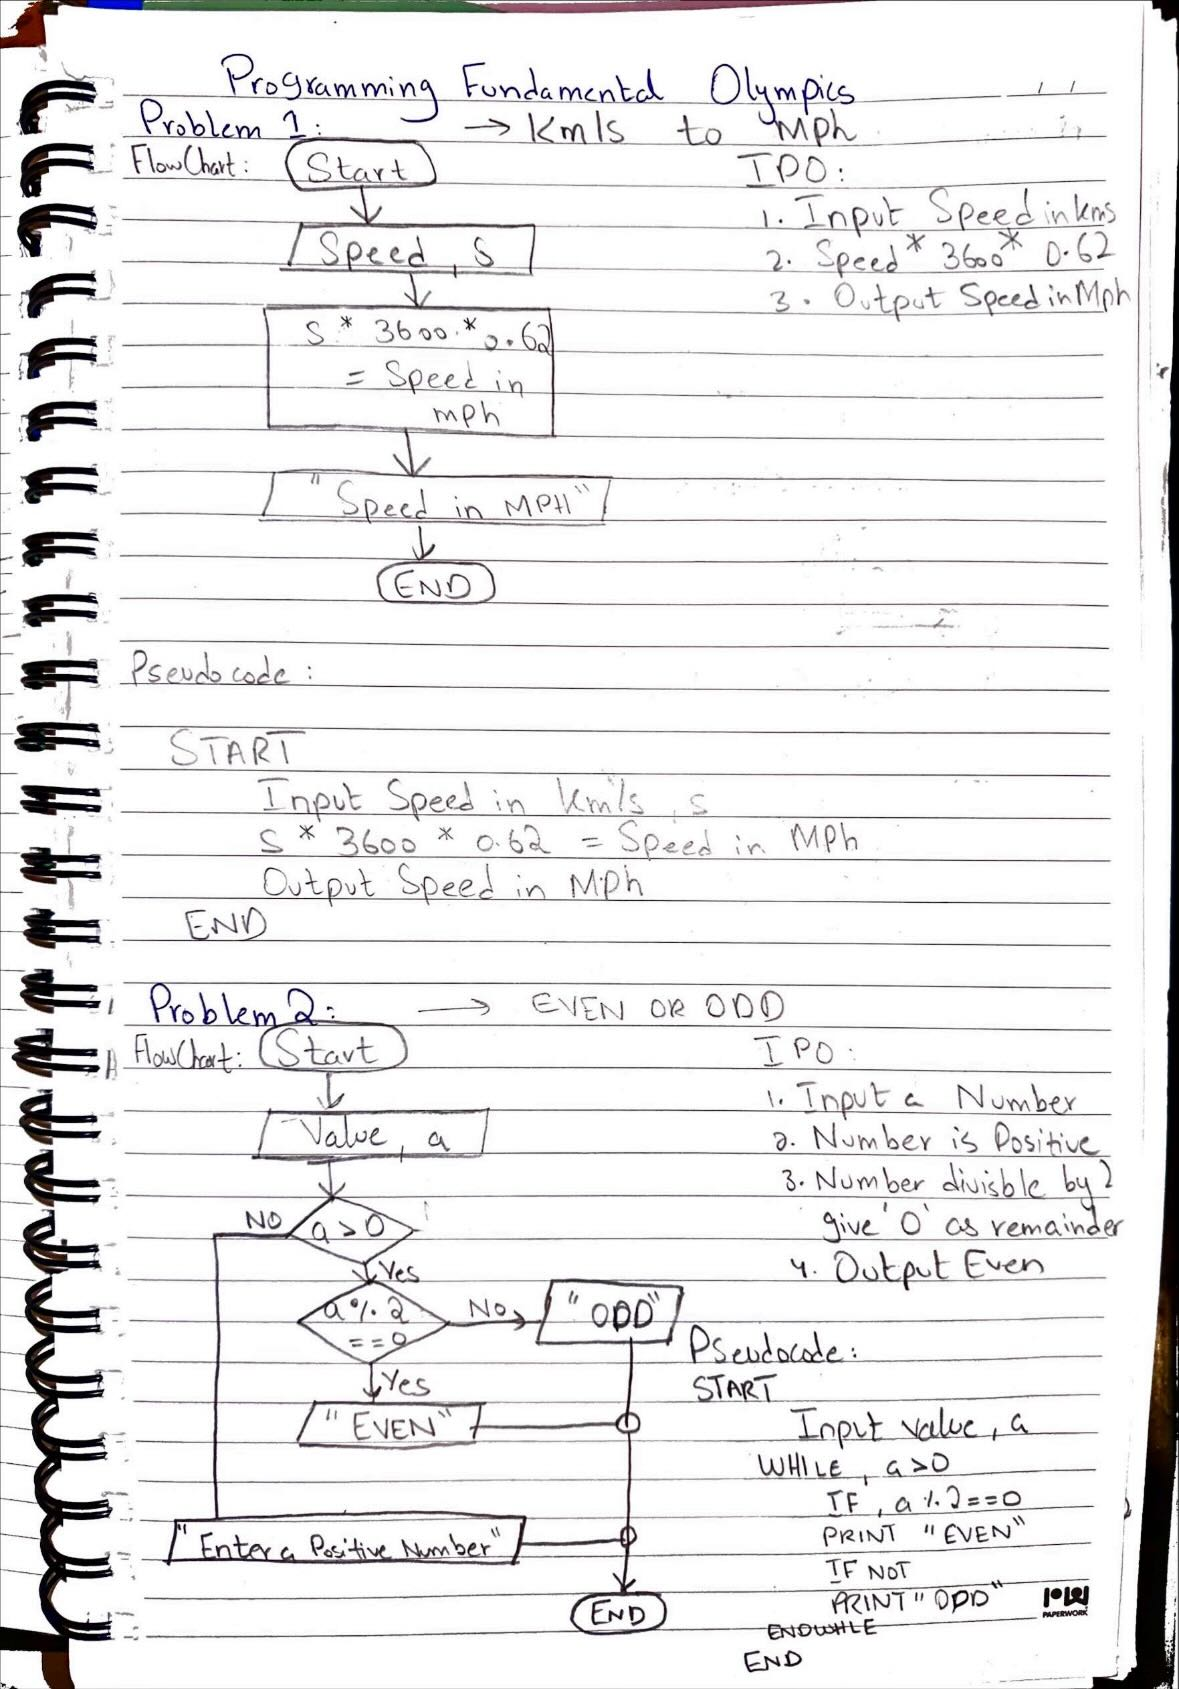 Programming Fundamental Olympics
Problem 1: → km/s to Mph
FlowChart:
Start
Speed, S
S * 3600 * 0.62
= Speed in
mph
"Speed in MPH"
END
IPO:
1. Input Speed in kms
2. Speed * 3600 * 0.62
3. Output Speed in Mph
Pseudocode:
START
Input Speed in km/s, s
S * 3600 * 0.62 = Speed in MPh
Output Speed in MPh
END
Problem 2: → EVEN OR ODD
FlowChart:
Start
Value, a
a > 0
NO
Yes
a % 2
== 0
NO
"ODD"
Yes
"EVEN"
"Enter a Positive Number"
END
IPO:
1. Input a Number
2. Number is Positive
3. Number divisble by 2
give '0' as remainder
4. Output Even
Pseudocode:
START
Input value, a
WHILE, a>0
IF, a % 2==0
PRINT "EVEN"
IF NOT
PRINT "ODD"
ENDWHILE
END
PAPERWORK